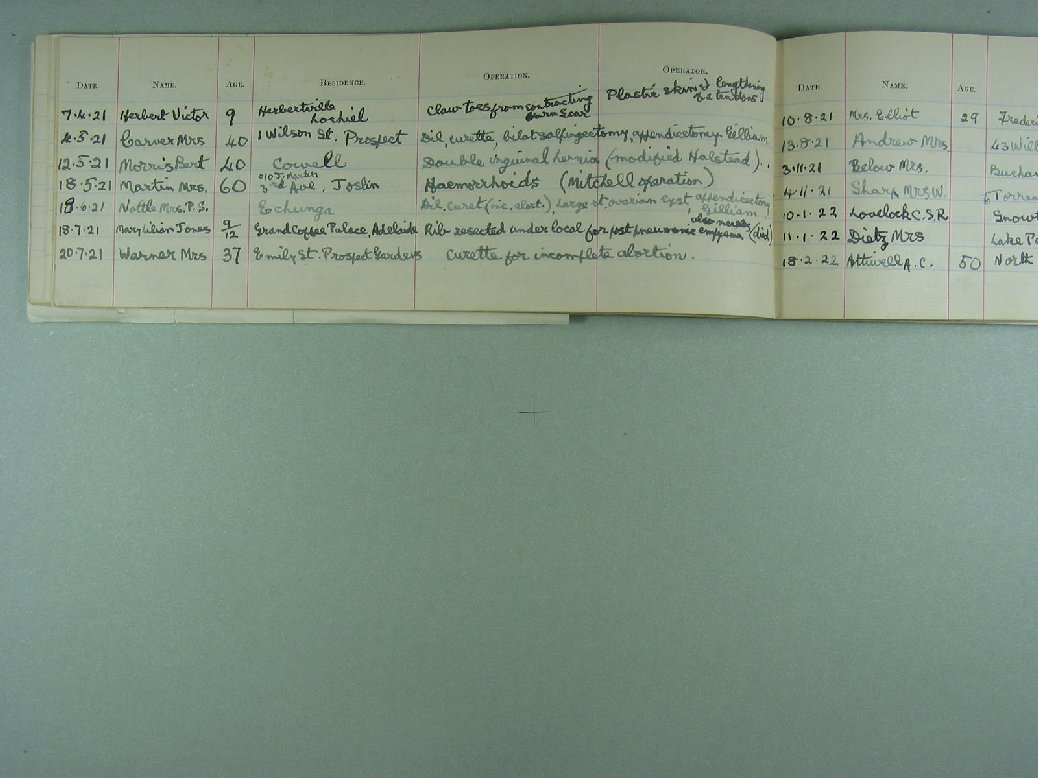 DATE NAME. AGE. RESIDENCE. OPERATION. OPERATOR.
7.4.21 Herbert Victor 9 Herbertville Lochiel Claw toes from contracting burn scar Plastic skin & lengthening of tendons
4.5.21 Carver Mrs 40 1 Wilson St. Prospect Dil, curette, bilat salpingectomy, appendicectomy. Gilliam
12.5.21 Morris Bert 40 Cowell Double inguinal hernia (modified Halstead).
18.5.21 Martin Mrs. 60 c/o J. Martin 3rd Ave. Joslin Haemorrhoids (Mitchell operation)
18.6.21 Nottle Mrs. P. S. Echunga Dil, curet (inc. abort.), large st. ovarian cyst, appendicectomy, Gilliam
18.7.21 Mary Lilian Jones 9/12 Grand Coffee Palace, Adelaide Rib resected under local for post pneumonic empyema (died)
20.7.21 Warner Mrs 37 Emily St. Prospect Gardens Curette for incomplete abortion.
DATE NAME. AGE.
10.8.21 Mrs. Elliot 29 Frederi
13.8.21 Andrew Mrs. 43 Will
3.11.21 Below Mrs. Buchan
4.11.21 Sharp Mrs W. Torren
10.1.22 Lovelock C.S.R. Snowt
11.1.22 Dietz Mrs Lake
18.2.22 Attiwell A. C. 50 North